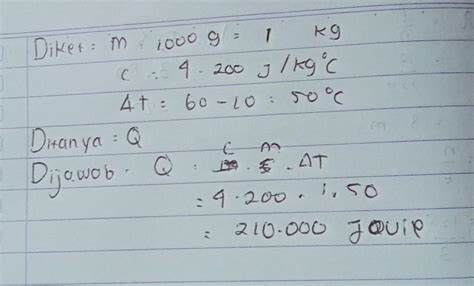 Diket : m : 1000 g = 1 kg
c : 4.200 J/kg°C
Δt = 60-10 : 50°C
Ditanya = Q
Dijawab . Q : c . m . ΔT
= 4.200 . 1 . 50
= 210.000 Joule